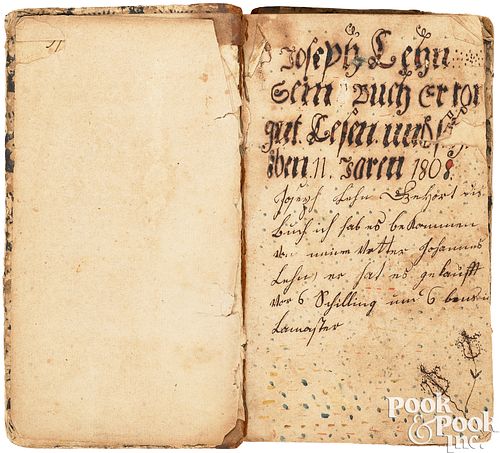 Joseph Lehn
Sein Buch Er
gut. Lesen. und
den. 11. Jaren 1808.
Joseph Lehn Gehört
Buch ich hab es bekommen
von meinem Vetter Johannes
Lehn, er hat es gekaufft
vor 6 Schilling und 6 bens
Lamaster
Pook
& Pook
Inc.